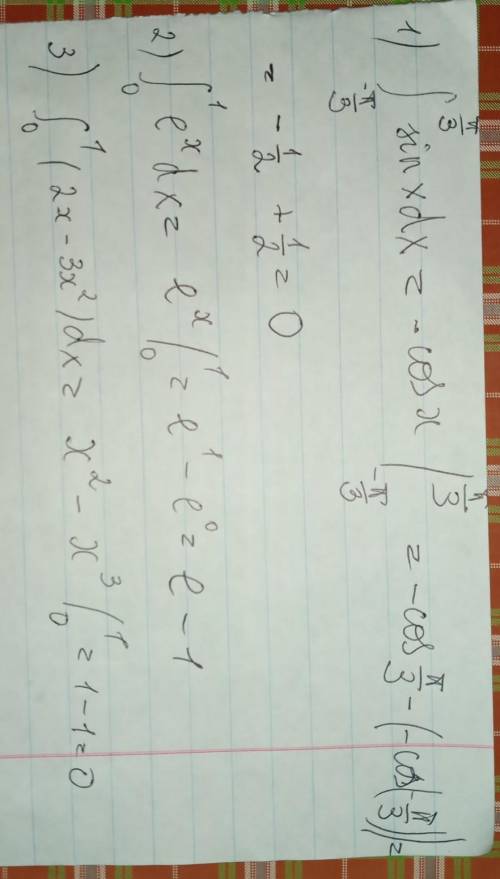 1) ∫_{-π/3}^{π/3} sin x dx = -cos x |_{-π/3}^{π/3} = -cos π/3 - (-cos(-π/3)) =
= -1/2 + 1/2 = 0
2) ∫_0^1 e^x dx = e^x |_0^1 = e^1 - e^0 = e - 1
3) ∫_0^1 (2x - 3x^2) dx = x^2 - x^3 |_0^1 = 1 - 1 = 0